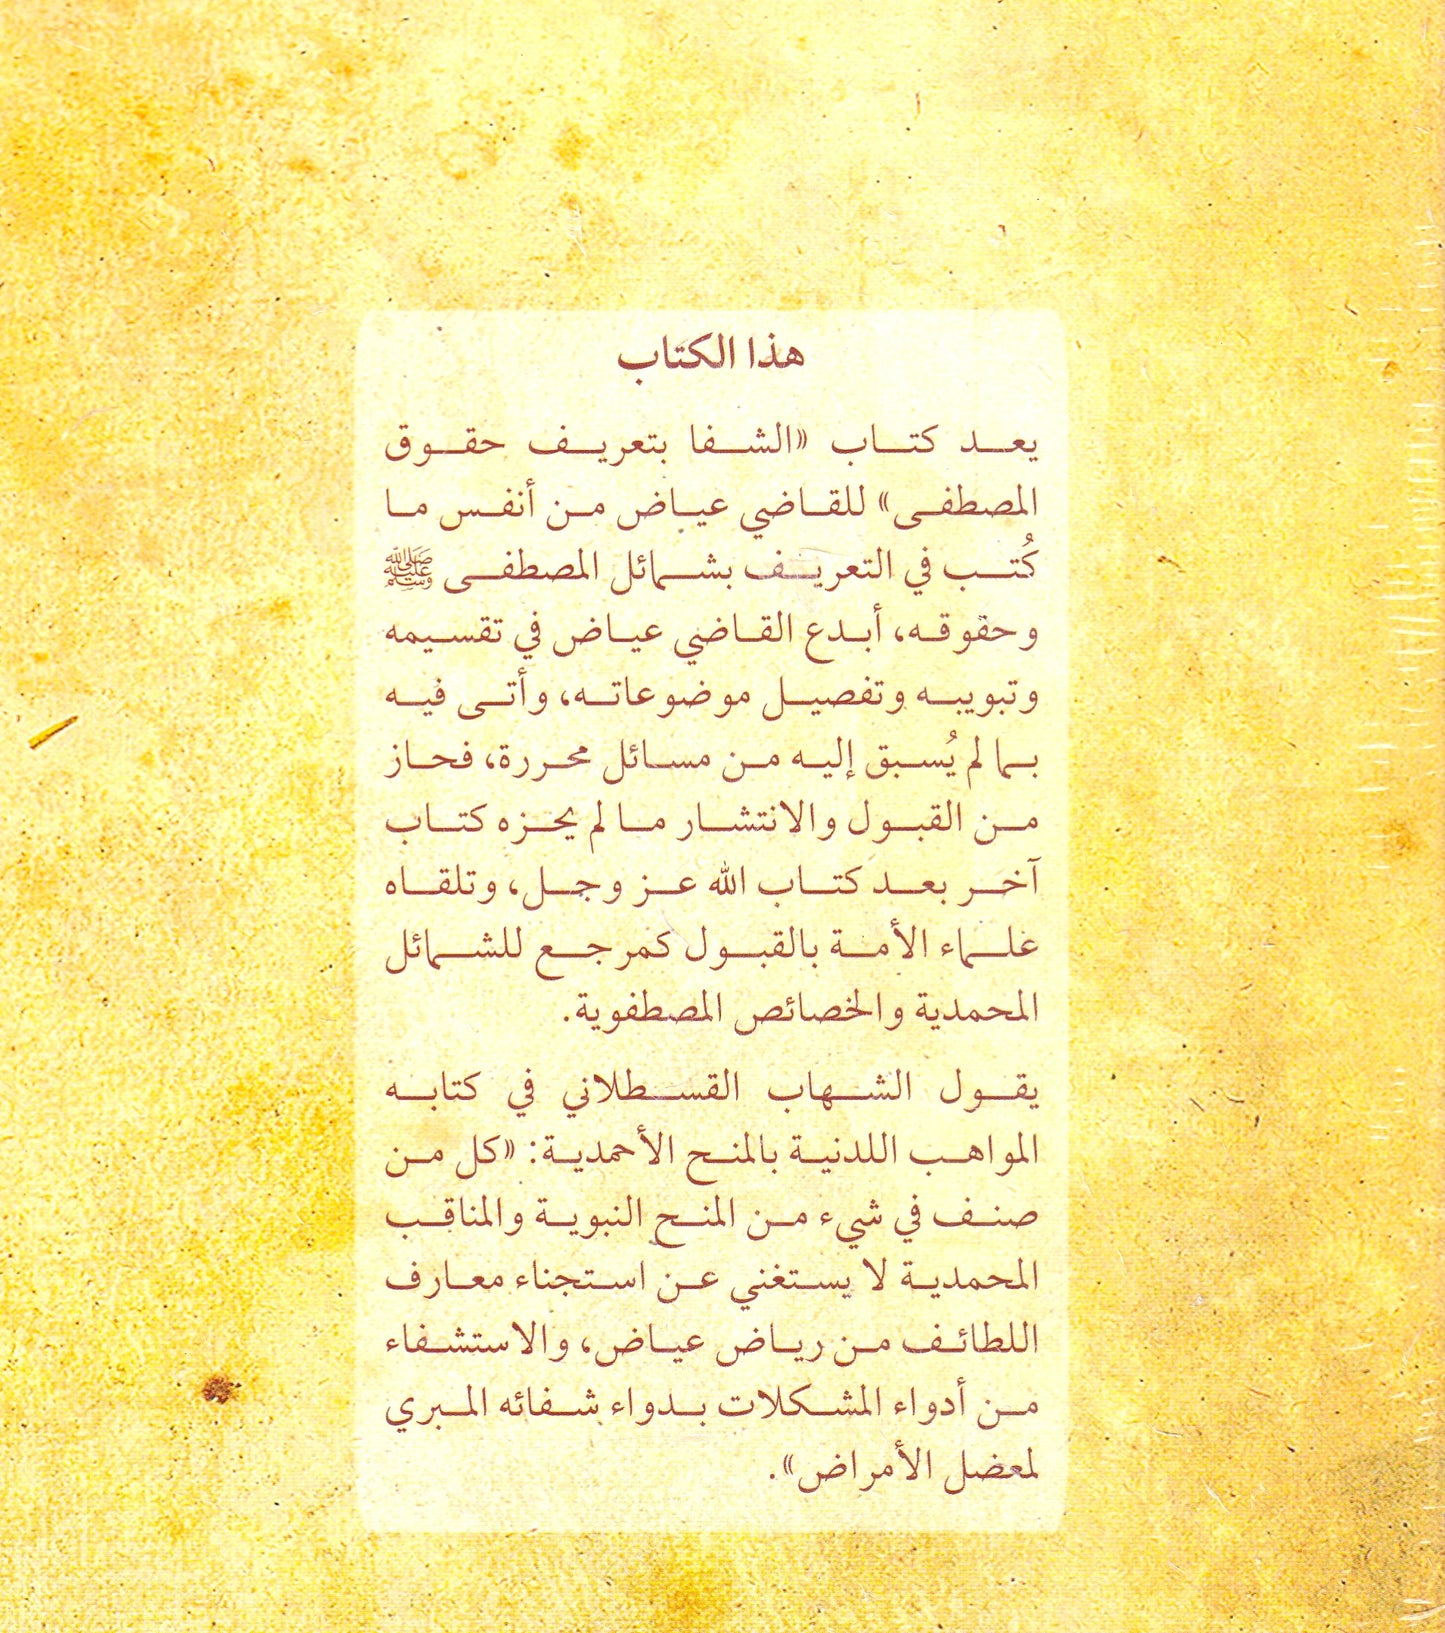 هذا الكتاب
يعد كتاب «الشفا بتعريف حقوق
المصطفى» للقاضي عياض من أنفس ما
كُتب في التعريف بشمائل المصطفى ﷺ
وحقوقه، أبدع القاضي عياض في تقسيمه
وتبويبه وتفصيل موضوعاته، وأتى فيه
بما لم يُسبق إليه من مسائل محررة، فحاز
من القبول والانتشار ما لم يحزه كتاب
آخر بعد كتاب الله عز وجل، وتلقاه
علماء الأمة بالقبول كمرجع للشمائل
المحمدية والخصائص المصطفوية.
يقول الشهاب القسطلاني في كتابه
المواهب اللدنية بالمنح الأحمدية: «كل من
صنف في شيء من المنح النبوية والمناقب
المحمدية لا يستغني عن استجناء معارف
اللطائف من رياض عياض، والاستشفاء
من أدواء المشكلات بدواء شفائه المبري
لمعضل الأمراض».